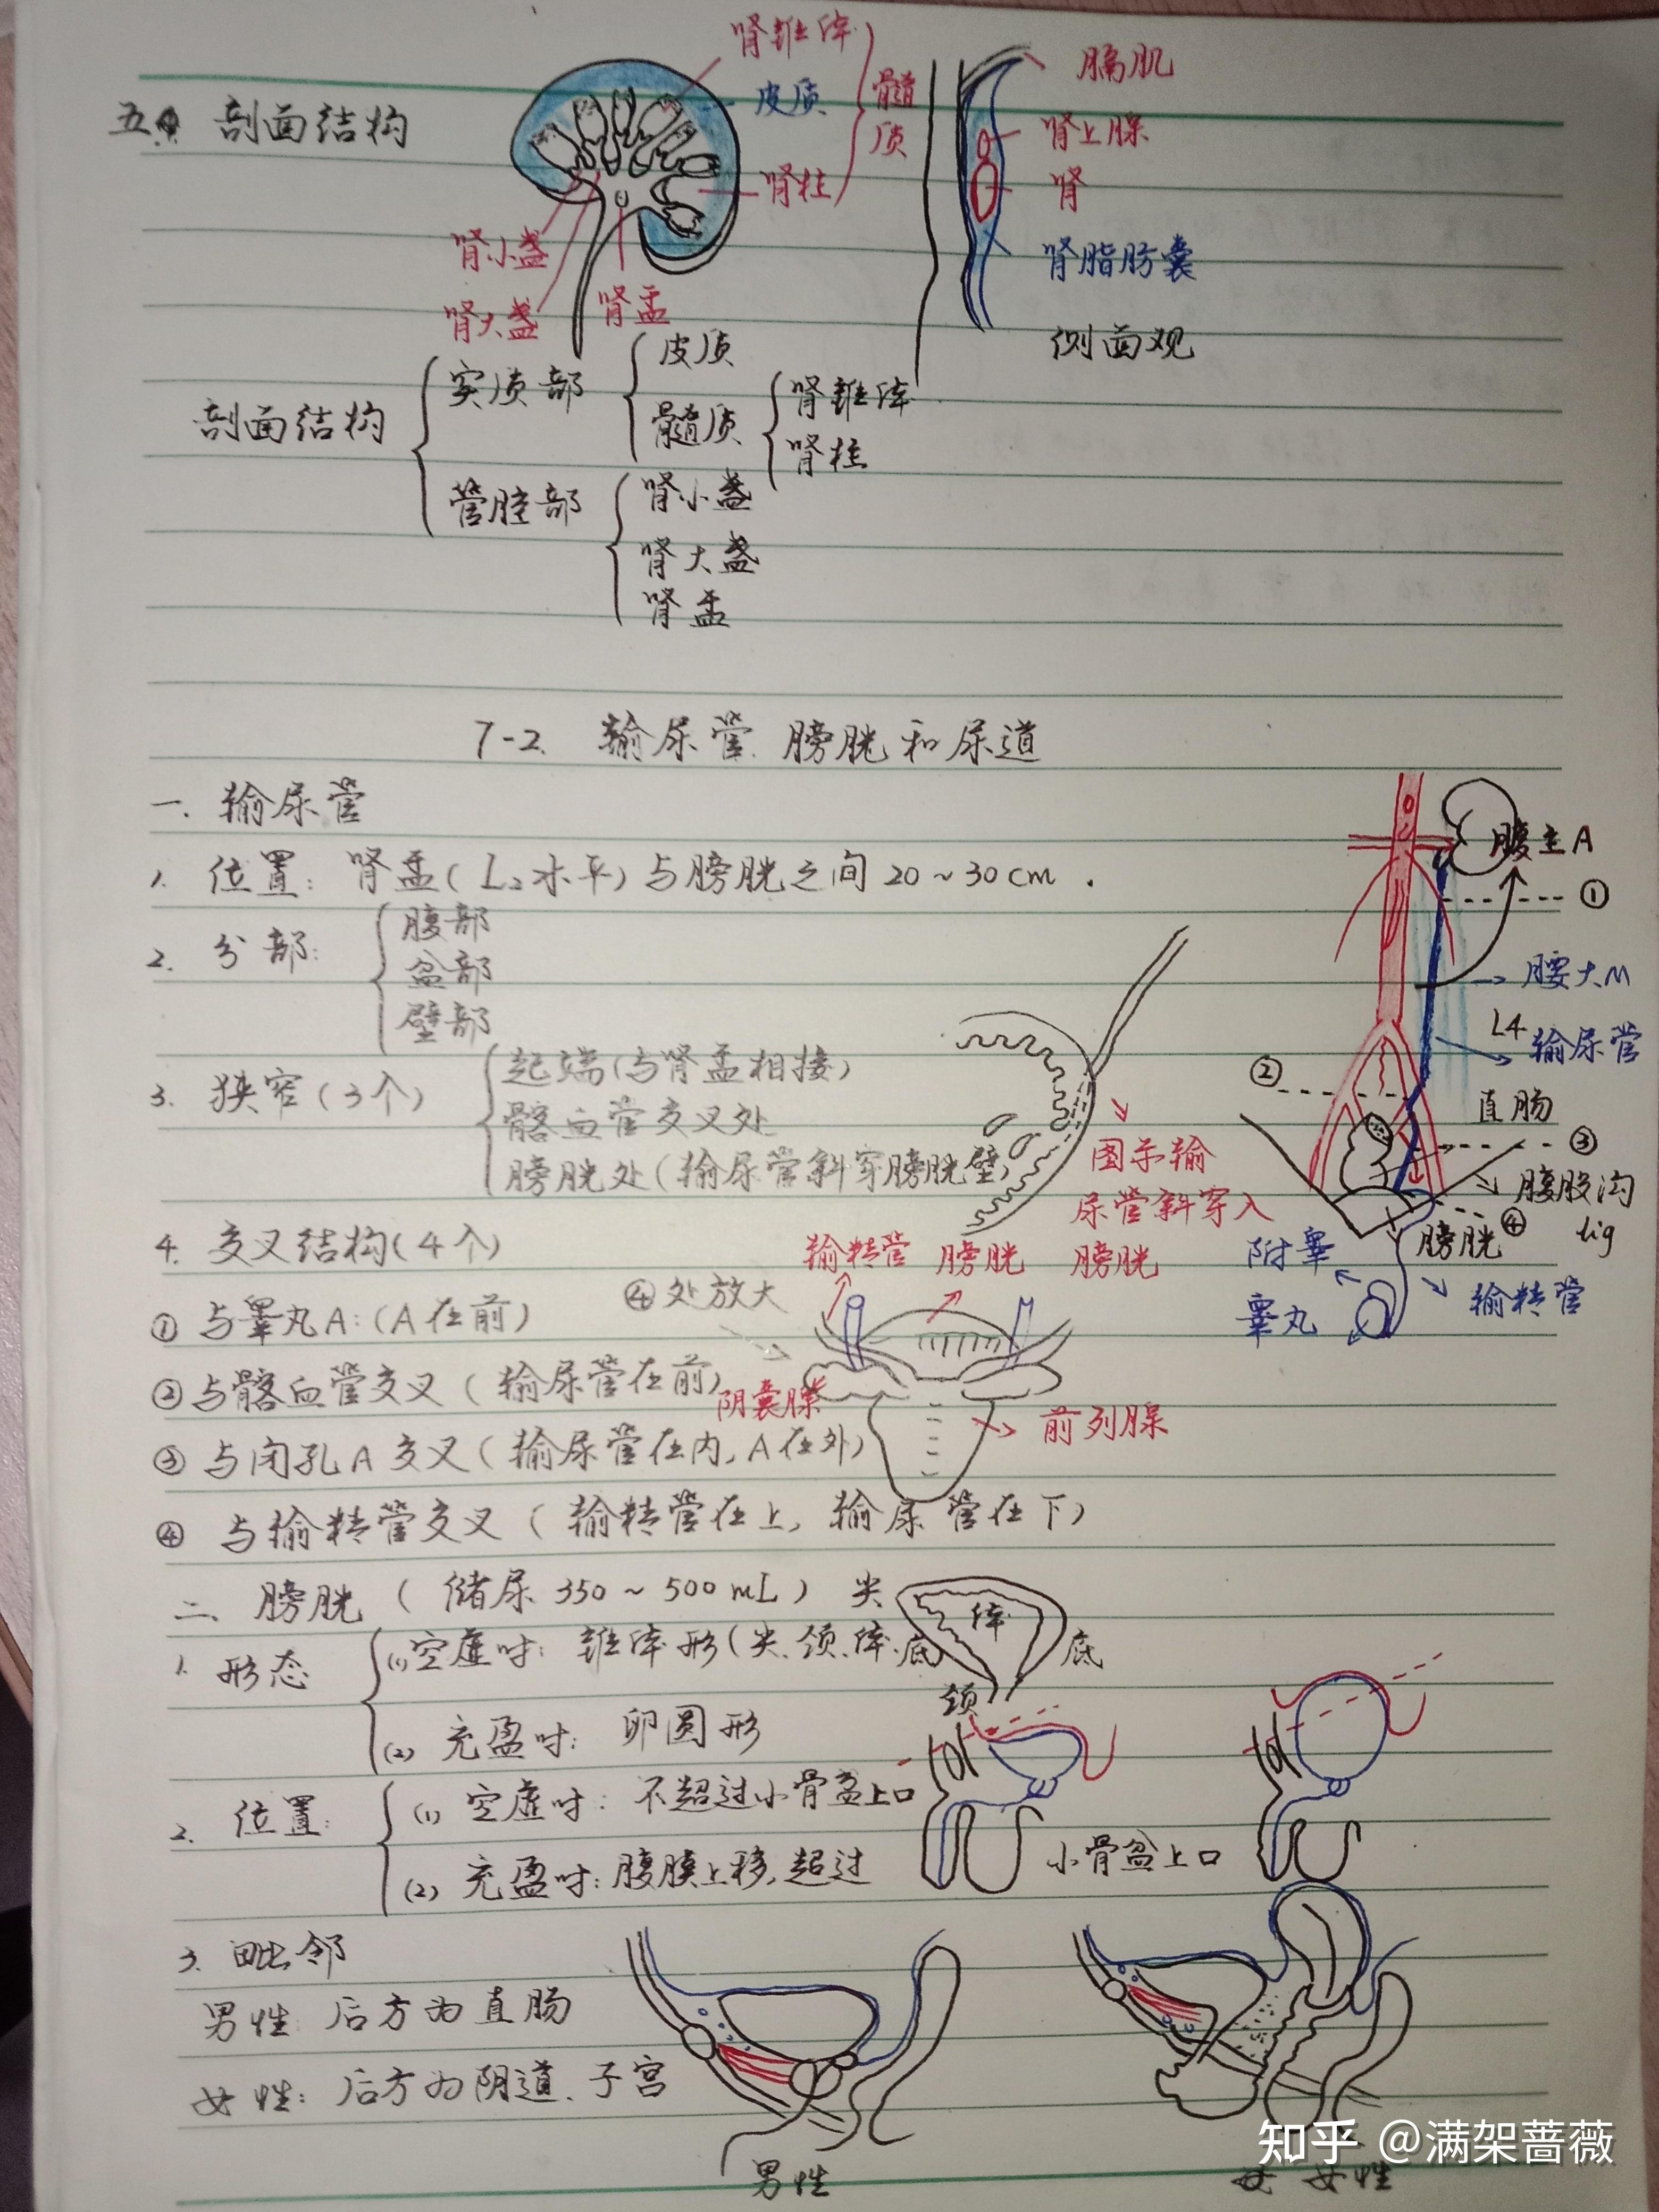 五. 剖面结构
肾锥体
皮质
肾柱
髓质
肾小盏
肾大盏
肾盂
膈肌
肾上腺
肾
肾脂肪囊
侧面观
剖面结构
实质部
皮质
髓质
肾锥体
肾柱
管腔部
肾小盏
肾大盏
肾盂
7-2. 输尿管. 膀胱和尿道
一. 输尿管
1. 位置: 肾盂(L₂水平)与膀胱之间 20~30cm.
2. 分部:
腹部
盆部
壁部
3. 狭窄(3个)
起端(与肾盂相接)
髂血管交叉处
膀胱处(输尿管斜穿膀胱壁)
图示输
尿管斜穿入
膀胱
腹主A
①
腰大M
L4
输尿管
②
直肠
③
腹股沟
lig
④
膀胱
输精管
附睾
睾丸
4. 交叉结构(4个)
①与睾丸A:(A在前)
②与髂血管交叉(输尿管在前)
③与闭孔A交叉(输尿管在内,A在外)
④与输精管交叉(输精管在上,输尿管在下)
④处放大
输精管
膀胱
阴囊腺
前列腺
二、膀胱(储尿350~500mL)
尖
体
底
颈
1. 形态
(1)空虚时: 锥体形(尖.颈.体.底)
(2)充盈时: 卵圆形
2. 位置:
(1)空虚时: 不超过小骨盆上口
(2)充盈时: 腹膜上移,超过
小骨盆上口
3. 毗邻
男性: 后方为直肠
女性: 后方为阴道、子宫
男性
女 女性
知乎 @满架蔷薇